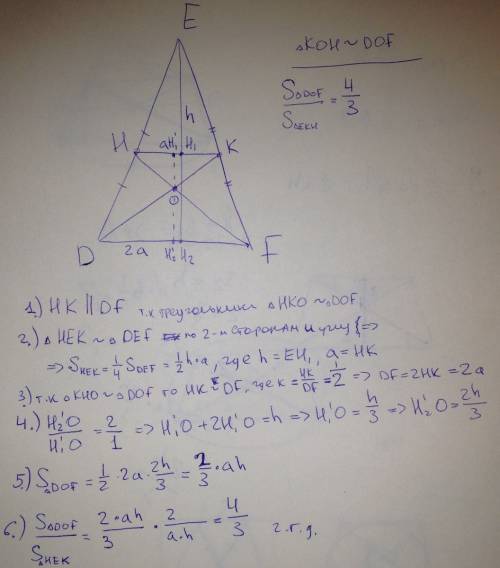 E
△KOH ~ DOF
S△DOF / S△EKH = 4/3
h
H aH₁' H₁ K
O
D 2a H₂' H₂ F
1.) HK || DF т.к треугольники △HKO ~ △DOF.
2.) △HEK ~ △DEF по 2-м сторонам и углу =>
=> S HEK = 1/4 S DEF = 1/2 h·a, где h = EH₁, a = HK
3) т.к △KHO ~ △DOF то HK DF, где k = HK/DF = 1/2 => DF = 2HK = 2a
4.) H₂'O / H₁'O = 2/1 => H₁'O + 2H₁'O = h => H₁'O = h/3 => H₂'O = 2h/3
5.) S△DOF = 1/2 · 2a · 2h/3 = 2/3 · ah
6.) S△DOF / S△HEK = 2·ah/3 · 2/a·h = 4/3 ч.т.д.